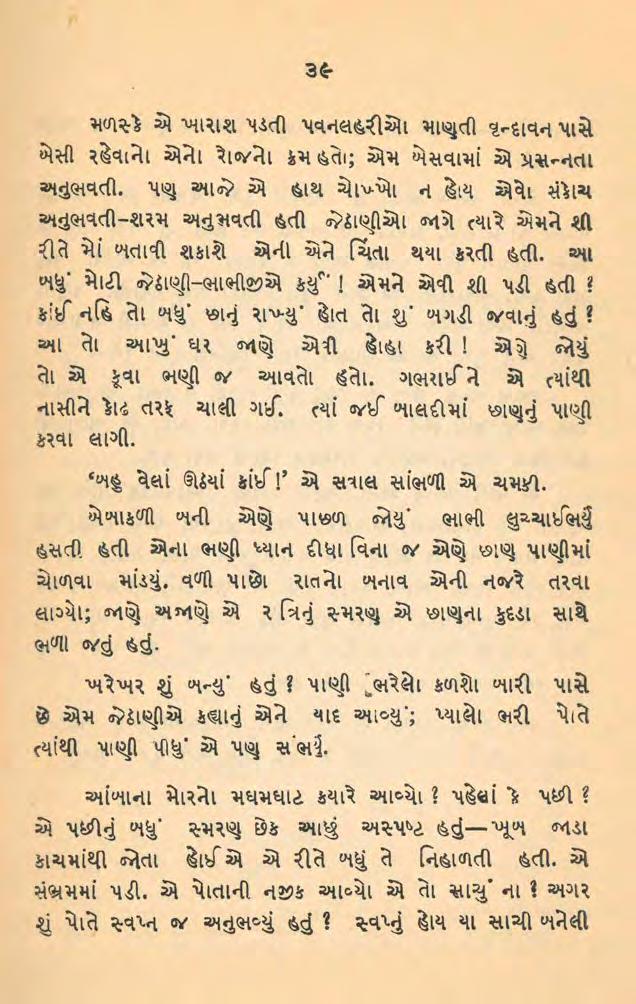 ૩૯
મળસ્કે એ ખારાશ પડતી પવનલહરીઓ માણતી વૃન્દાવન પાસે
બેસી રહેવાનો એનો રોજનો ક્રમ હતો; એમ બેસવામાં એ પ્રસન્નતા
અનુભવતી. પણ આજે એ હાથ ચોખ્ખો ન હોય એવો સંકોચ
અનુભવતી-શરમ અનુભવતી હતી જેઠાણીઓ જાગે ત્યારે એમને શી
રીતે મોં બતાવી શકાશે એની એને ચિંતા થયા કરતી હતી. આ
બધું મોટી જેઠાણી-ભાભીજીએ કર્યું ! એમને એવી શી પડી હતી ?
કાંઈ નહિ તો બધું છાનું રાખ્યું હોત તો શું બગડી જવાનું હતું ?
આ તો આખું ઘર જાણે એવી હોહા કરી ! એણે જોયું
તો એ કૂવા ભણી જ આવતો હતો. ગભરાઈને એ ત્યાંથી
નાસીને કોઢ તરફ ચાલી ગઈ. ત્યાં જઈ બાલદીમાં છાણનું પાણી
કરવા લાગી.
‘બહુ વેલાં ઊઠ્યાં કાંઈ !’ એ સવાલ સાંભળી એ ચમકી.
બેબાકળી બની એણે પાછળ જોયું ભાભી લુચ્ચાઈભર્યું
હસતી હતી એના ભણી ધ્યાન દીધા વિના જ એણે છાણ પાણીમાં
ચોળવા માંડયું. વળી પાછો રાતનો બનાવ એની નજરે તરવા
લાગ્યો; જાણે અજાણે એ રાત્રિનું સ્મરણ એ છાણના કુદડા સાથે
ભળી જતું હતું.
ખરેખર શું બન્યું હતું ? પાણી ભરેલો કળશો બારી પાસે
છે એમ જેઠાણીએ કહ્યાનું એને યાદ આવ્યું; પ્યાલો ભરી પોતે
ત્યાંથી પાણી પીધું એ પણ સંભર્યું.
આંબાના મોરનો મઘમઘાટ કયારે આવ્યો ? પહેલાં કે પછી ?
એ પછીનું બધું સ્મરણ છેક આછું અસ્પષ્ટ હતું—ખૂબ જાડા
કાચમાંથી જોતા હોઈએ એ રીતે બધું તે નિહાળતી હતી. એ
સંભ્રમમાં પડી. એ પોતાની નજીક આવ્યો એ તો સાચું ના ? અગર
શું પોતે સ્વપ્ન જ અનુભવ્યું હતું ? સ્વપ્નું હોય યા સાચી બનેલી